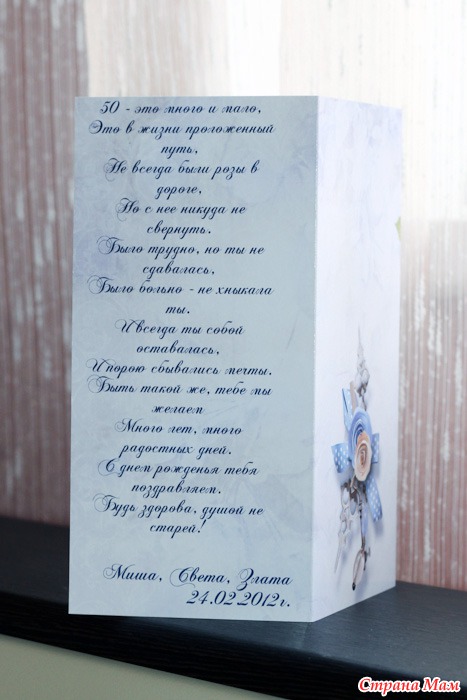 50 - это много и мало,
Это в жизни проложенный
путь,
Не всегда были розы в
дороге,
Но с нее никуда не
свернуть.
Было трудно, но ты не
сдавалась,
Было больно - не хныкала
ты.
И всегда ты собой
оставалась,
И порою сбывались мечты.
Быть такой же, тебе мы
желаем
Много лет, много
радостных дней.
С днем рожденья тебя
поздравляем.
Будь здорова, душой не
старей!
Миша, Света, Злата
24.02.2012г.
Страна Мам